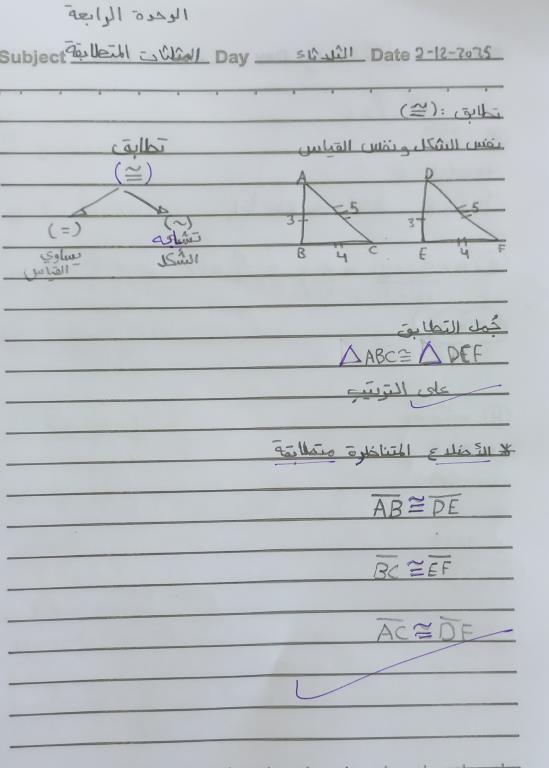 الوحدة الرابعة
Subject المثلثات المتطابقة Day الثلاثاء Date 2-12-2025
تطابق : (≅)
نفس الشكل و نفس القياس
تطابق
(≅)
(=)
يساوي
القياس
(~)
تشابه
الشكل
A
3
5
B
4
C
D
3
5
E
4
F
جُمل التطابق
△ ABC ≅ △ DEF
على الترتيب
* الأضلاع المتناظرة متطابقة
AB ≅ DE
BC ≅ EF
AC ≅ DF